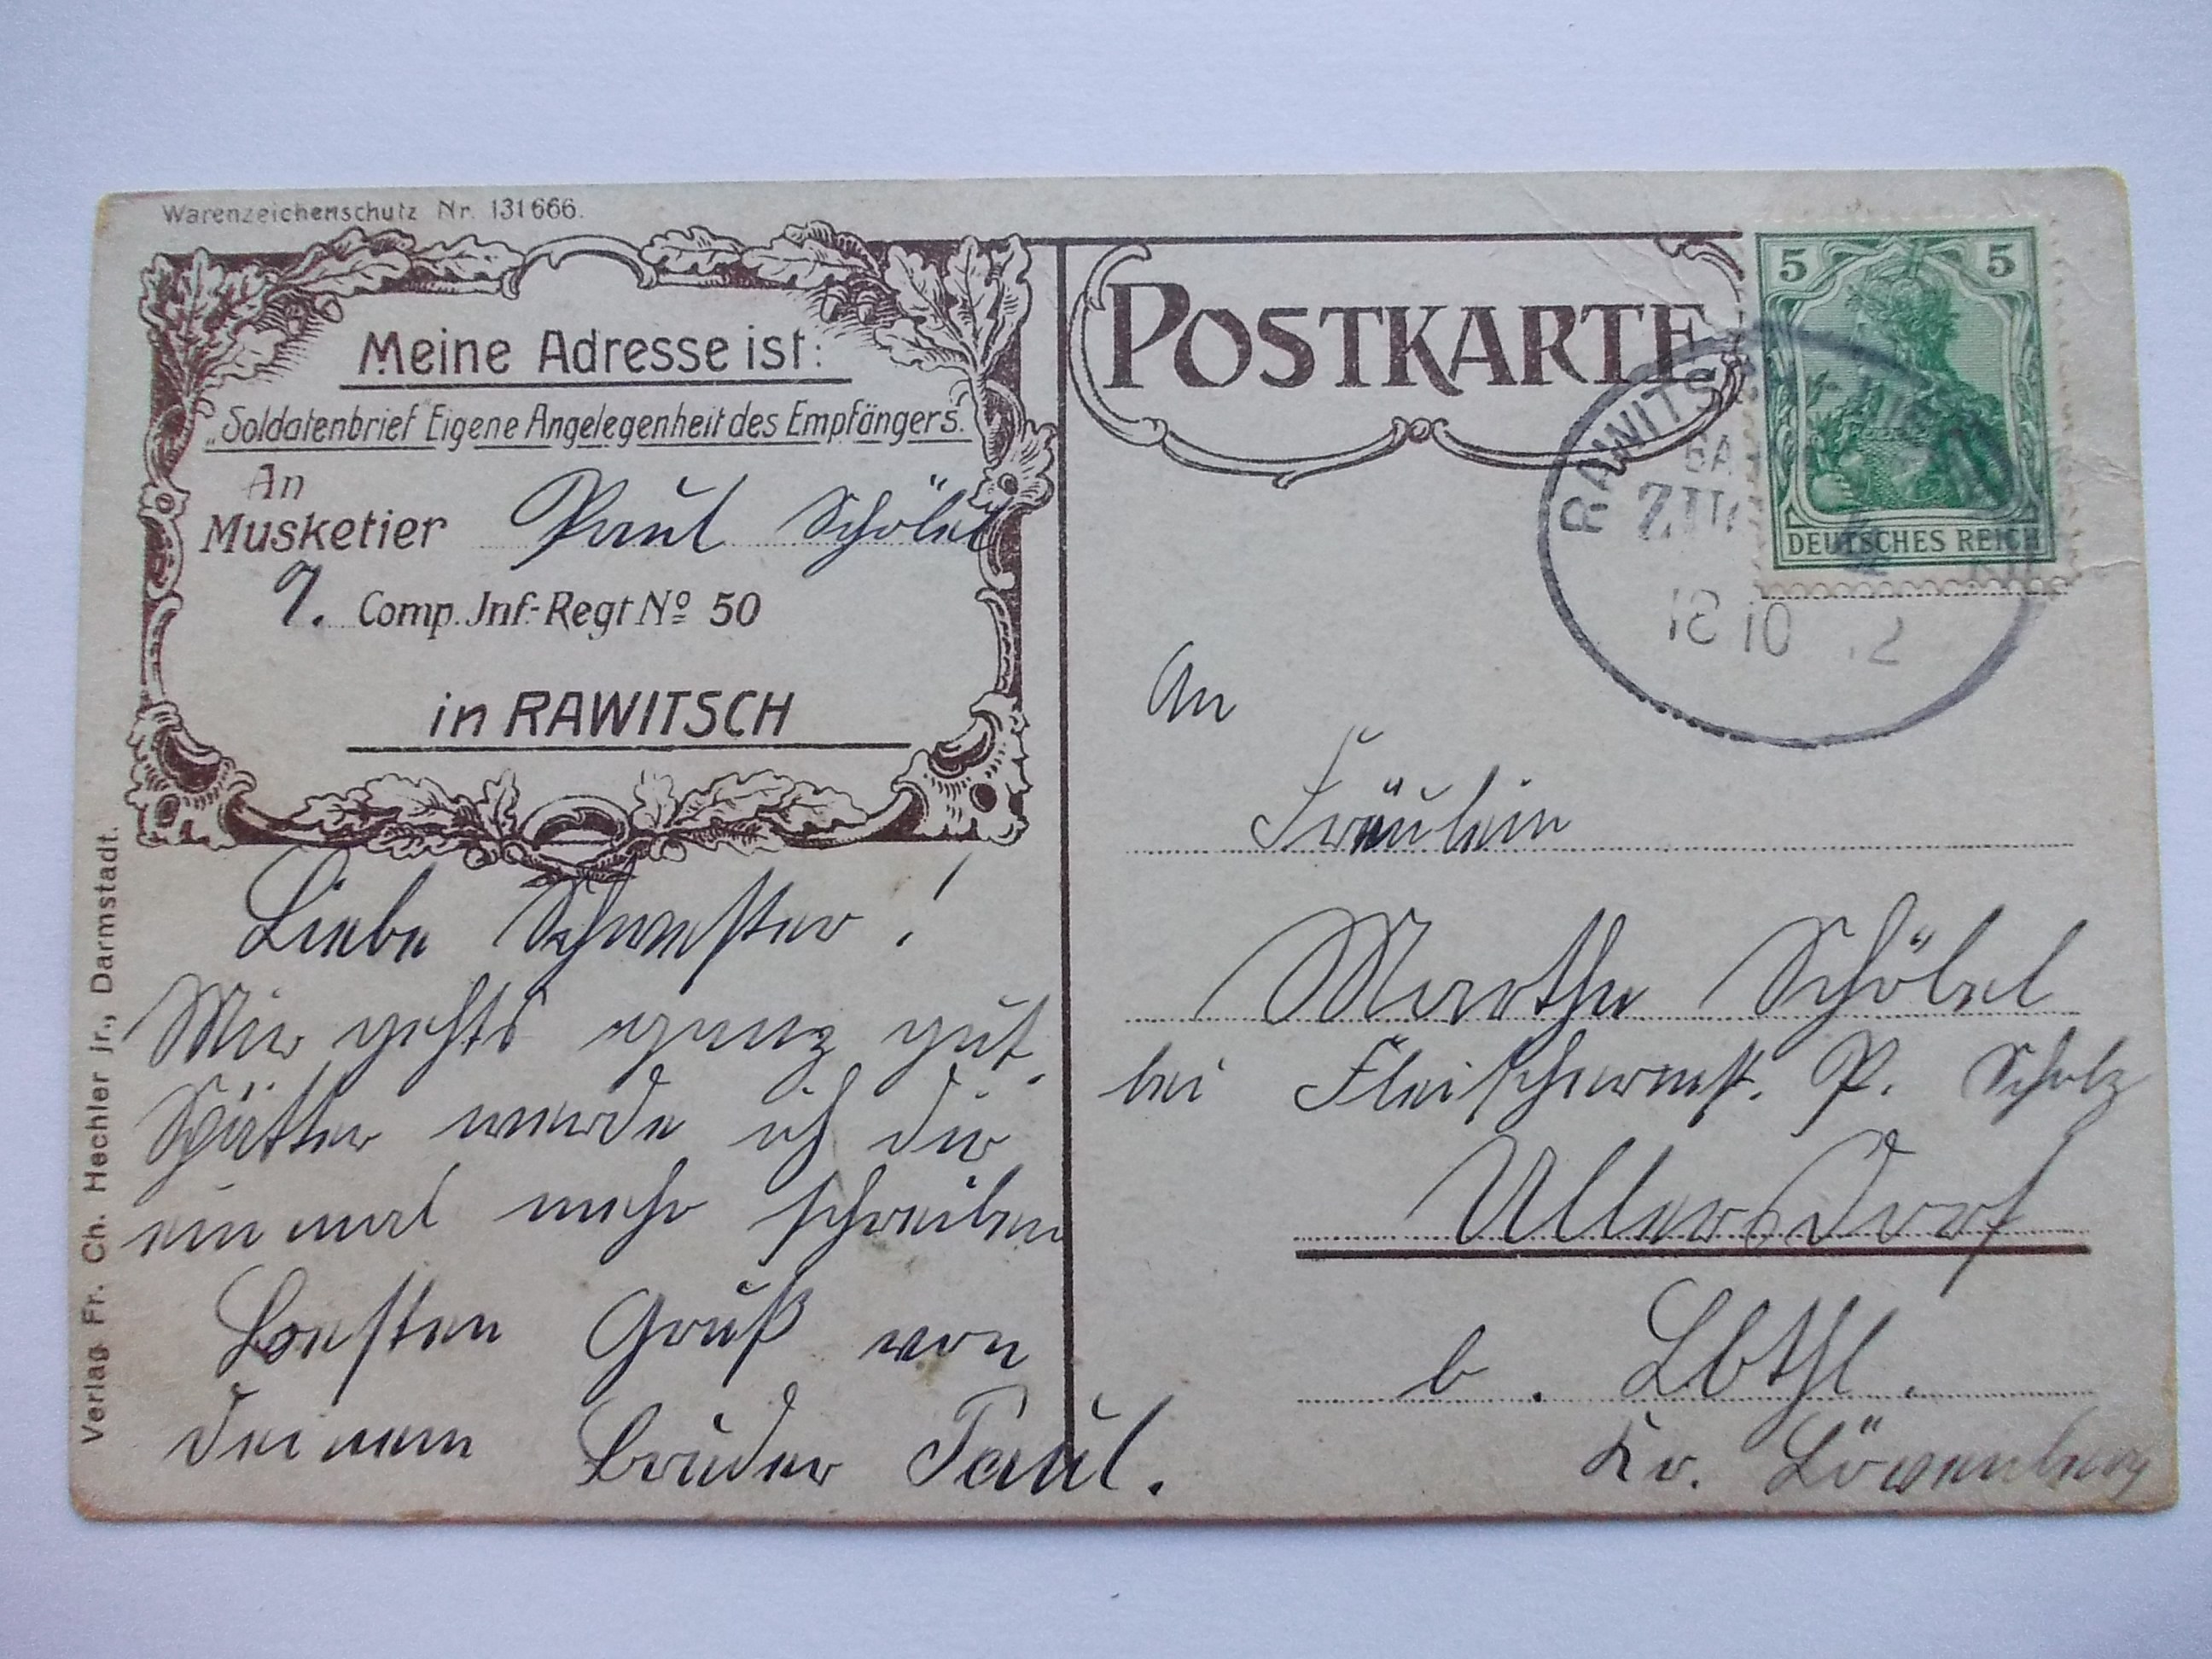 Warenzeichenschutz Nr. 131666.
Meine Adresse ist:
„Soldatenbrief" Eigene Angelegenheit des Empfängers.
An
Musketier Paul Schöbel
9. Comp. Inf.-Regt No 50
in RAWITSCH
Liebe Schwester!
Mir gehts ganz gut.
Spätter werde ich dir
ein mal mehr schreiben
Besten Gruß von
deinem Bruder Paul.
Verlag Fr. Ch. Hechler jr., Darmstadt.
POSTKARTE
5 5
DEUTSCHES REICH
RAWITSCH
18 10 12
An
Fräulein
Martha Schöbel
bei Fleischermst. P. Scholz
Ullersdorf
b. Lbthl.
Kr. Löwenberg